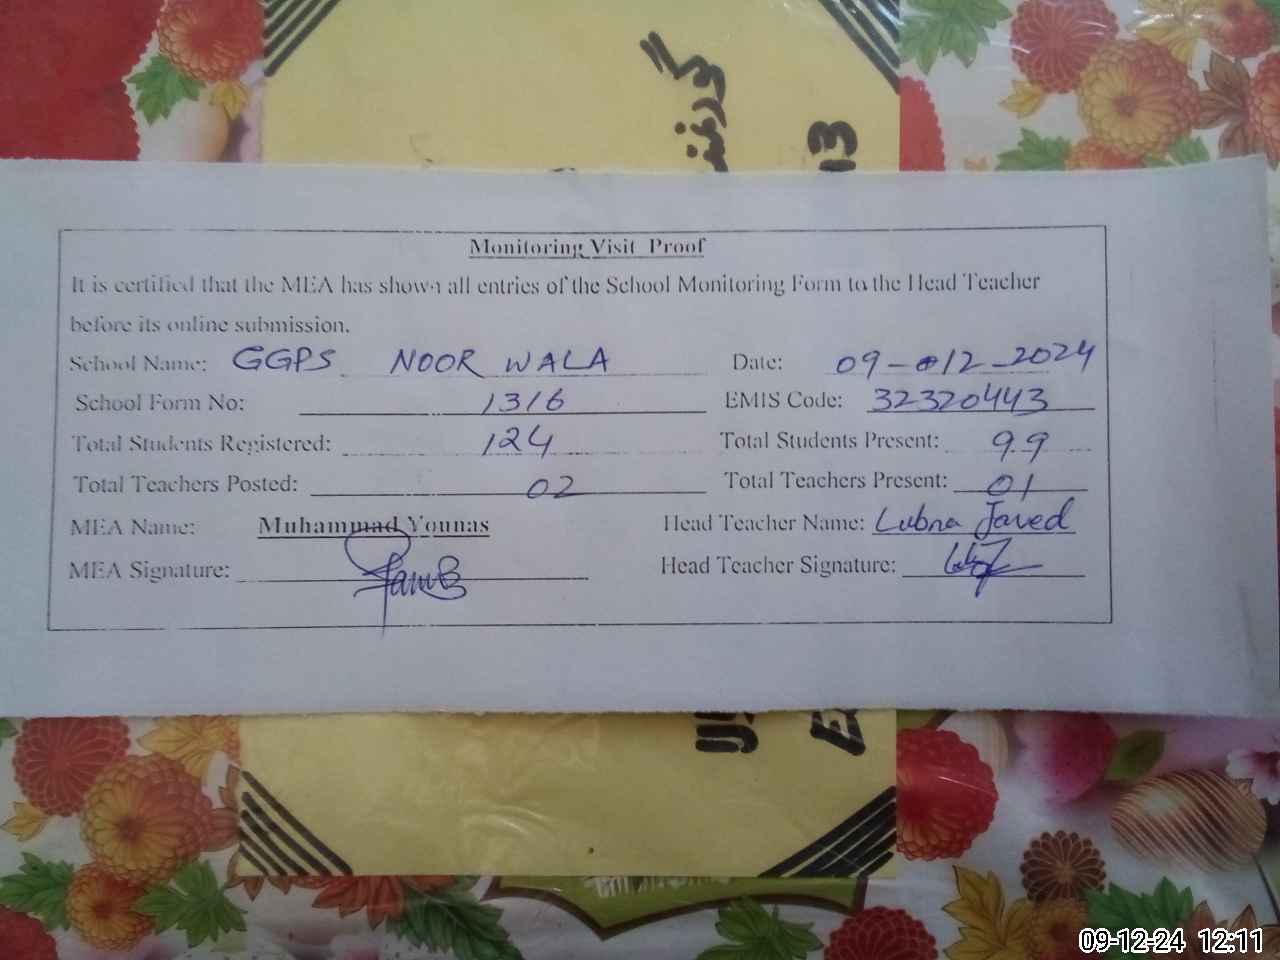 گورنمنٹ
Monitoring Visit Proof
It is certified that the MEA has shown all entries of the School Monitoring Form to the Head Teacher
before its online submission.
School Name: GGPS NOOR WALA Date: 09-12-2024
School Form No: 1316 EMIS Code: 32320443
Total Students Registered: 124 Total Students Present: 99
Total Teachers Posted: 02 Total Teachers Present: 01
MEA Name: Muhammad Younas Head Teacher Name: Lubna Javed
MEA Signature: Head Teacher Signature:
09-12-24 12:11